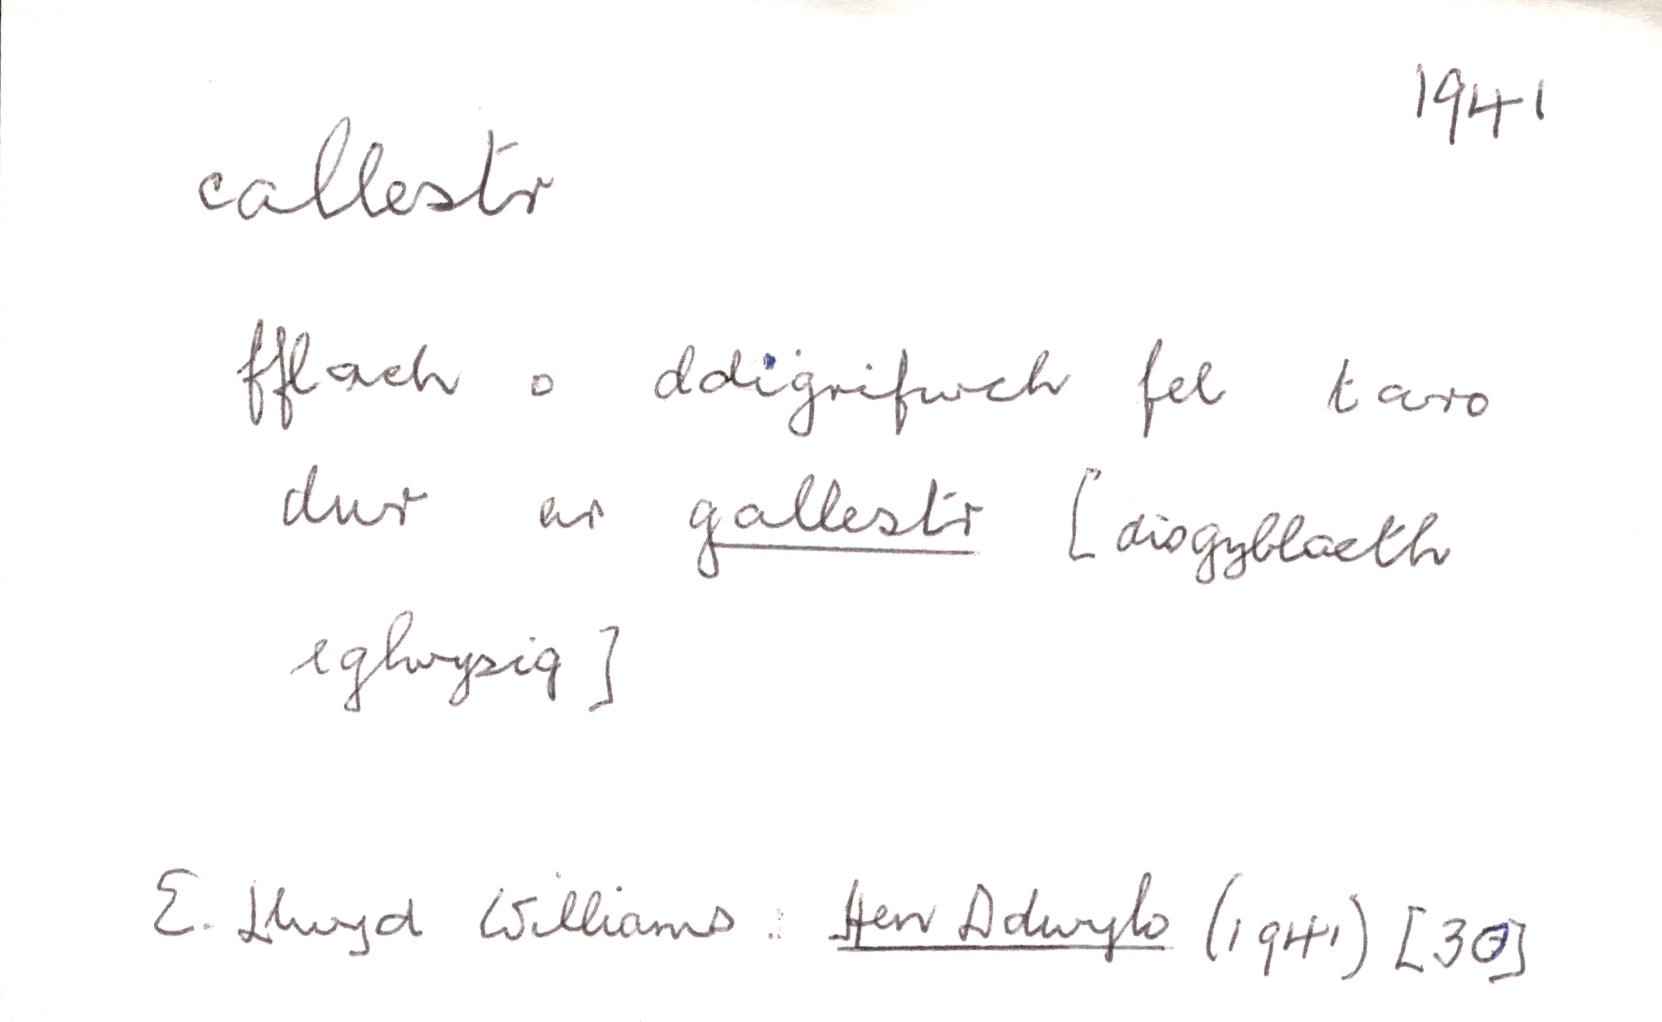 1941
callestr
fflach o ddigrifwch fel taro
dur ar gallestr [disgyblaeth
eglwysig]
E. Llwyd Williams: Hen Ddwylo (1941) [30]